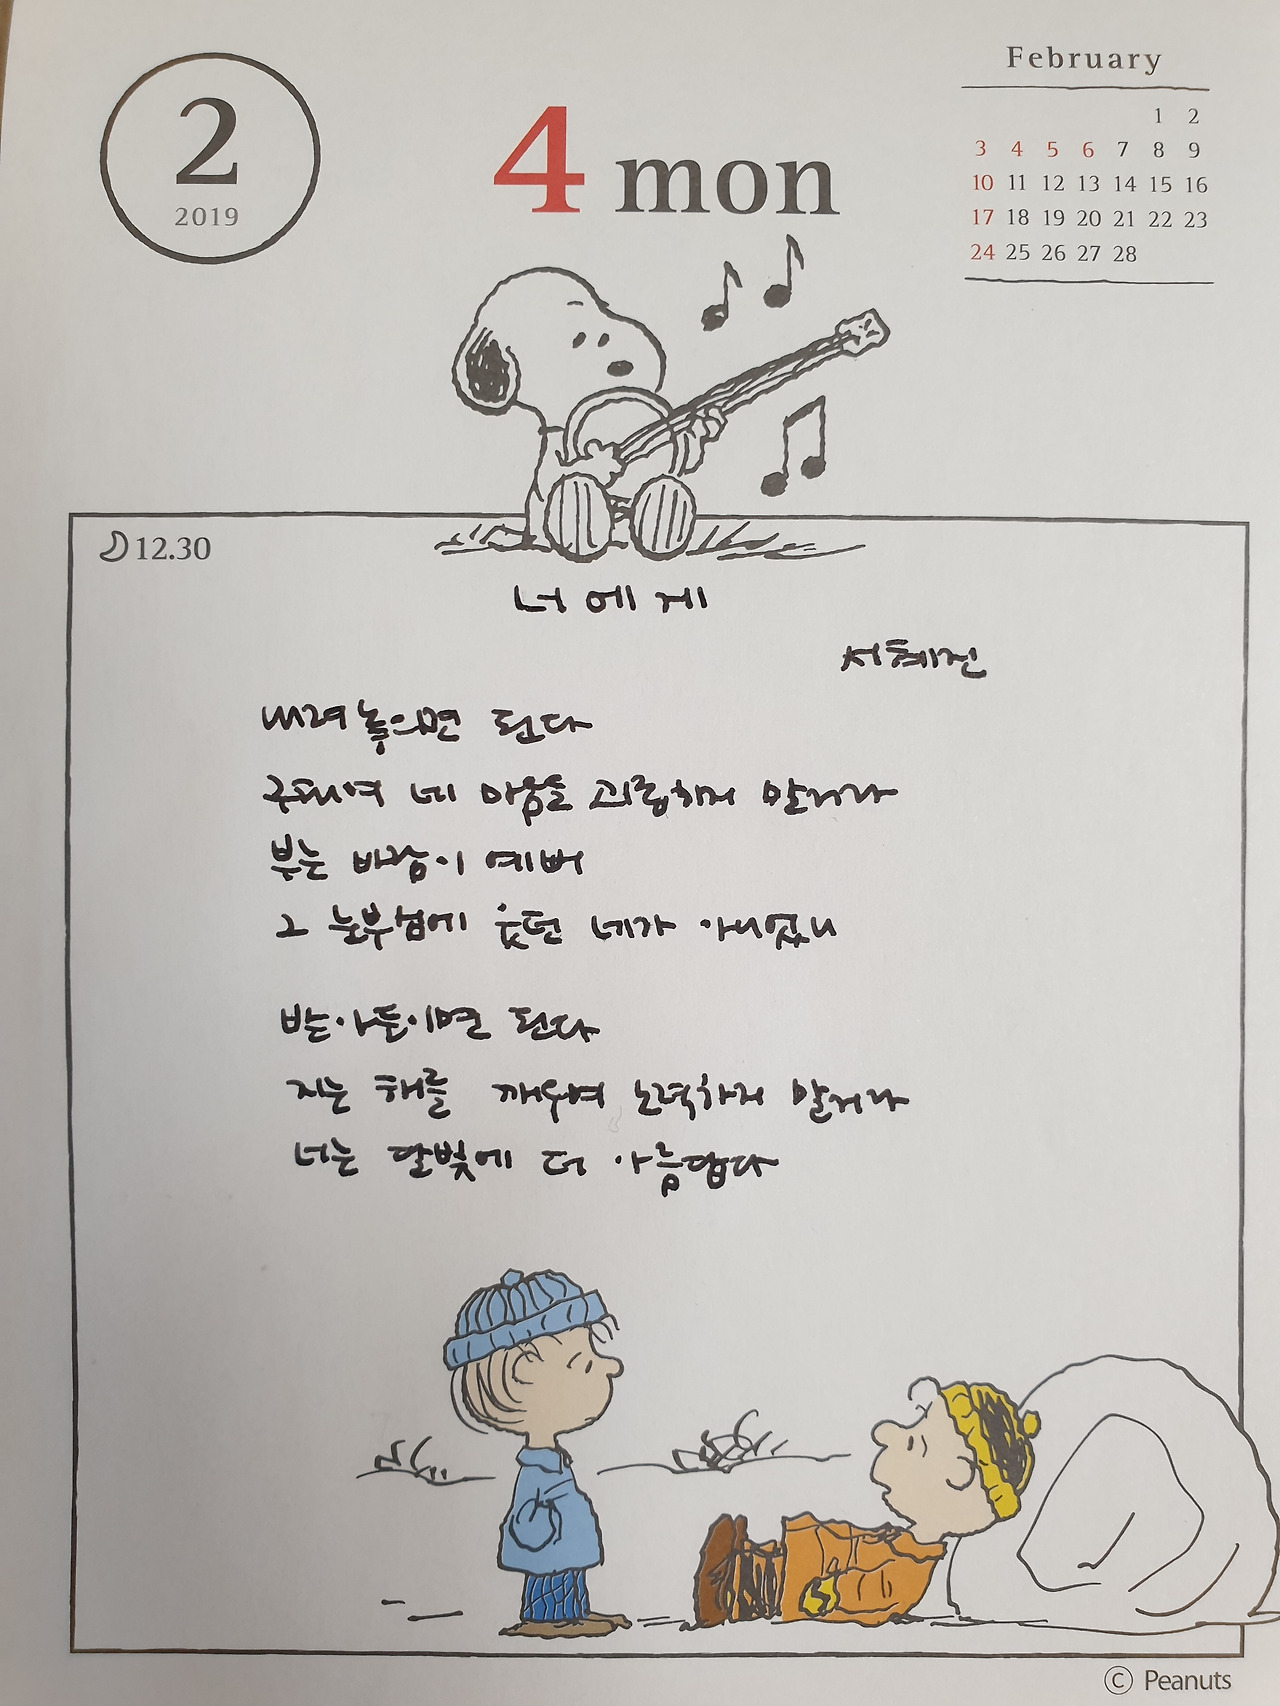 2
2019
4 mon
February
1 2
3 4 5 6 7 8 9
10 11 12 13 14 15 16
17 18 19 20 21 22 23
24 25 26 27 28
12.30
너에게
서혜진
내려놓으면 된다
구태여 네 마음을 괴롭히지 말거라
부는 바람이 예뻐
그 눈부심에 웃던 네가 아니었니
받아들이면 된다
지는 해를 깨우려 노력하지 말거라
너는 달빛에 더 아름답다
© Peanuts